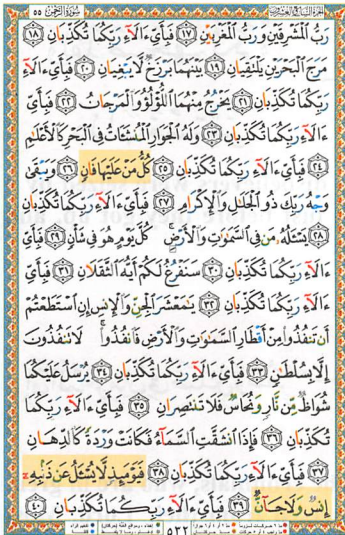 سورة الرحمن ٥٥
رَبُّ ٱلْمَشْرِقَيْنِ وَرَبُّ ٱلْمَغْرِبَيْنِ ١٧ فَبِأَيِّ ءَالَآءِ رَبِّكُمَا تُكَذِّبَانِ ١٨
مَرَجَ ٱلْبَحْرَيْنِ يَلْتَقِيَانِ ١٩ بَيْنَهُمَا بَرْزَخٌ لَّا يَبْغِيَانِ ٢٠ فَبِأَيِّ ءَالَآءِ
رَبِّكُمَا تُكَذِّبَانِ ٢١ يَخْرُجُ مِنْهُمَا ٱللُّؤْلُؤُ وَٱلْمَرْجَانُ ٢٢ فَبِأَيِّ
ءَالَآءِ رَبِّكُمَا تُكَذِّبَانِ ٢٣ وَلَهُ ٱلْجَوَارِ ٱلْمُنشَـَٔاتُ فِى ٱلْبَحْرِ كَٱلْأَعْلَٰمِ
٢٤ فَبِأَيِّ ءَالَآءِ رَبِّكُمَا تُكَذِّبَانِ ٢٥ كُلُّ مَنْ عَلَيْهَا فَانٍ ٢٦ وَيَبْقَىٰ
وَجْهُ رَبِّكَ ذُو ٱلْجَلَٰلِ وَٱلْإِكْرَامِ ٢٧ فَبِأَيِّ ءَالَآءِ رَبِّكُمَا تُكَذِّبَانِ
٢٨ يَسْـَٔلُهُۥ مَن فِى ٱلسَّمَٰوَٰتِ وَٱلْأَرْضِ ۚ كُلَّ يَوْمٍ هُوَ فِى شَأْنٍ ٢٩ فَبِأَيِّ
ءَالَآءِ رَبِّكُمَا تُكَذِّبَانِ ٣٠ سَنَفْرُغُ لَكُمْ أَيُّهَ ٱلثَّقَلَانِ ٣١ فَبِأَيِّ
ءَالَآءِ رَبِّكُمَا تُكَذِّبَانِ ٣٢ يَٰمَعْشَرَ ٱلْجِنِّ وَٱلْإِنسِ إِنِ ٱسْتَطَعْتُمْ
أَن تَنفُذُوا۟ مِنْ أَقْطَارِ ٱلسَّمَٰوَٰتِ وَٱلْأَرْضِ فَٱنفُذُوا۟ ۚ لَا تَنفُذُونَ
إِلَّا بِسُلْطَٰنٍ ٣٣ فَبِأَيِّ ءَالَآءِ رَبِّكُمَا تُكَذِّبَانِ ٣٤ يُرْسَلُ عَلَيْكُمَا
شُوَاظٌ مِّن نَّارٍ وَنُحَاسٌ فَلَا تَنتَصِرَانِ ٣٥ فَبِأَيِّ ءَالَآءِ رَبِّكُمَا
تُكَذِّبَانِ ٣٦ فَإِذَا ٱنشَقَّتِ ٱلسَّمَآءُ فَكَانَتْ وَرْدَةً كَٱلدِّهَانِ
٣٧ فَبِأَيِّ ءَالَآءِ رَبِّكُمَا تُكَذِّبَانِ ٣٨ فَيَوْمَئِذٍ لَّا يُسْـَٔلُ عَن ذَنۢبِهِۦٓ
إِنسٌ وَلَا جَآنٌّ ٣٩ فَبِأَيِّ ءَالَآءِ رَبِّكُمَا تُكَذِّبَانِ ٤٠
٥٣٢